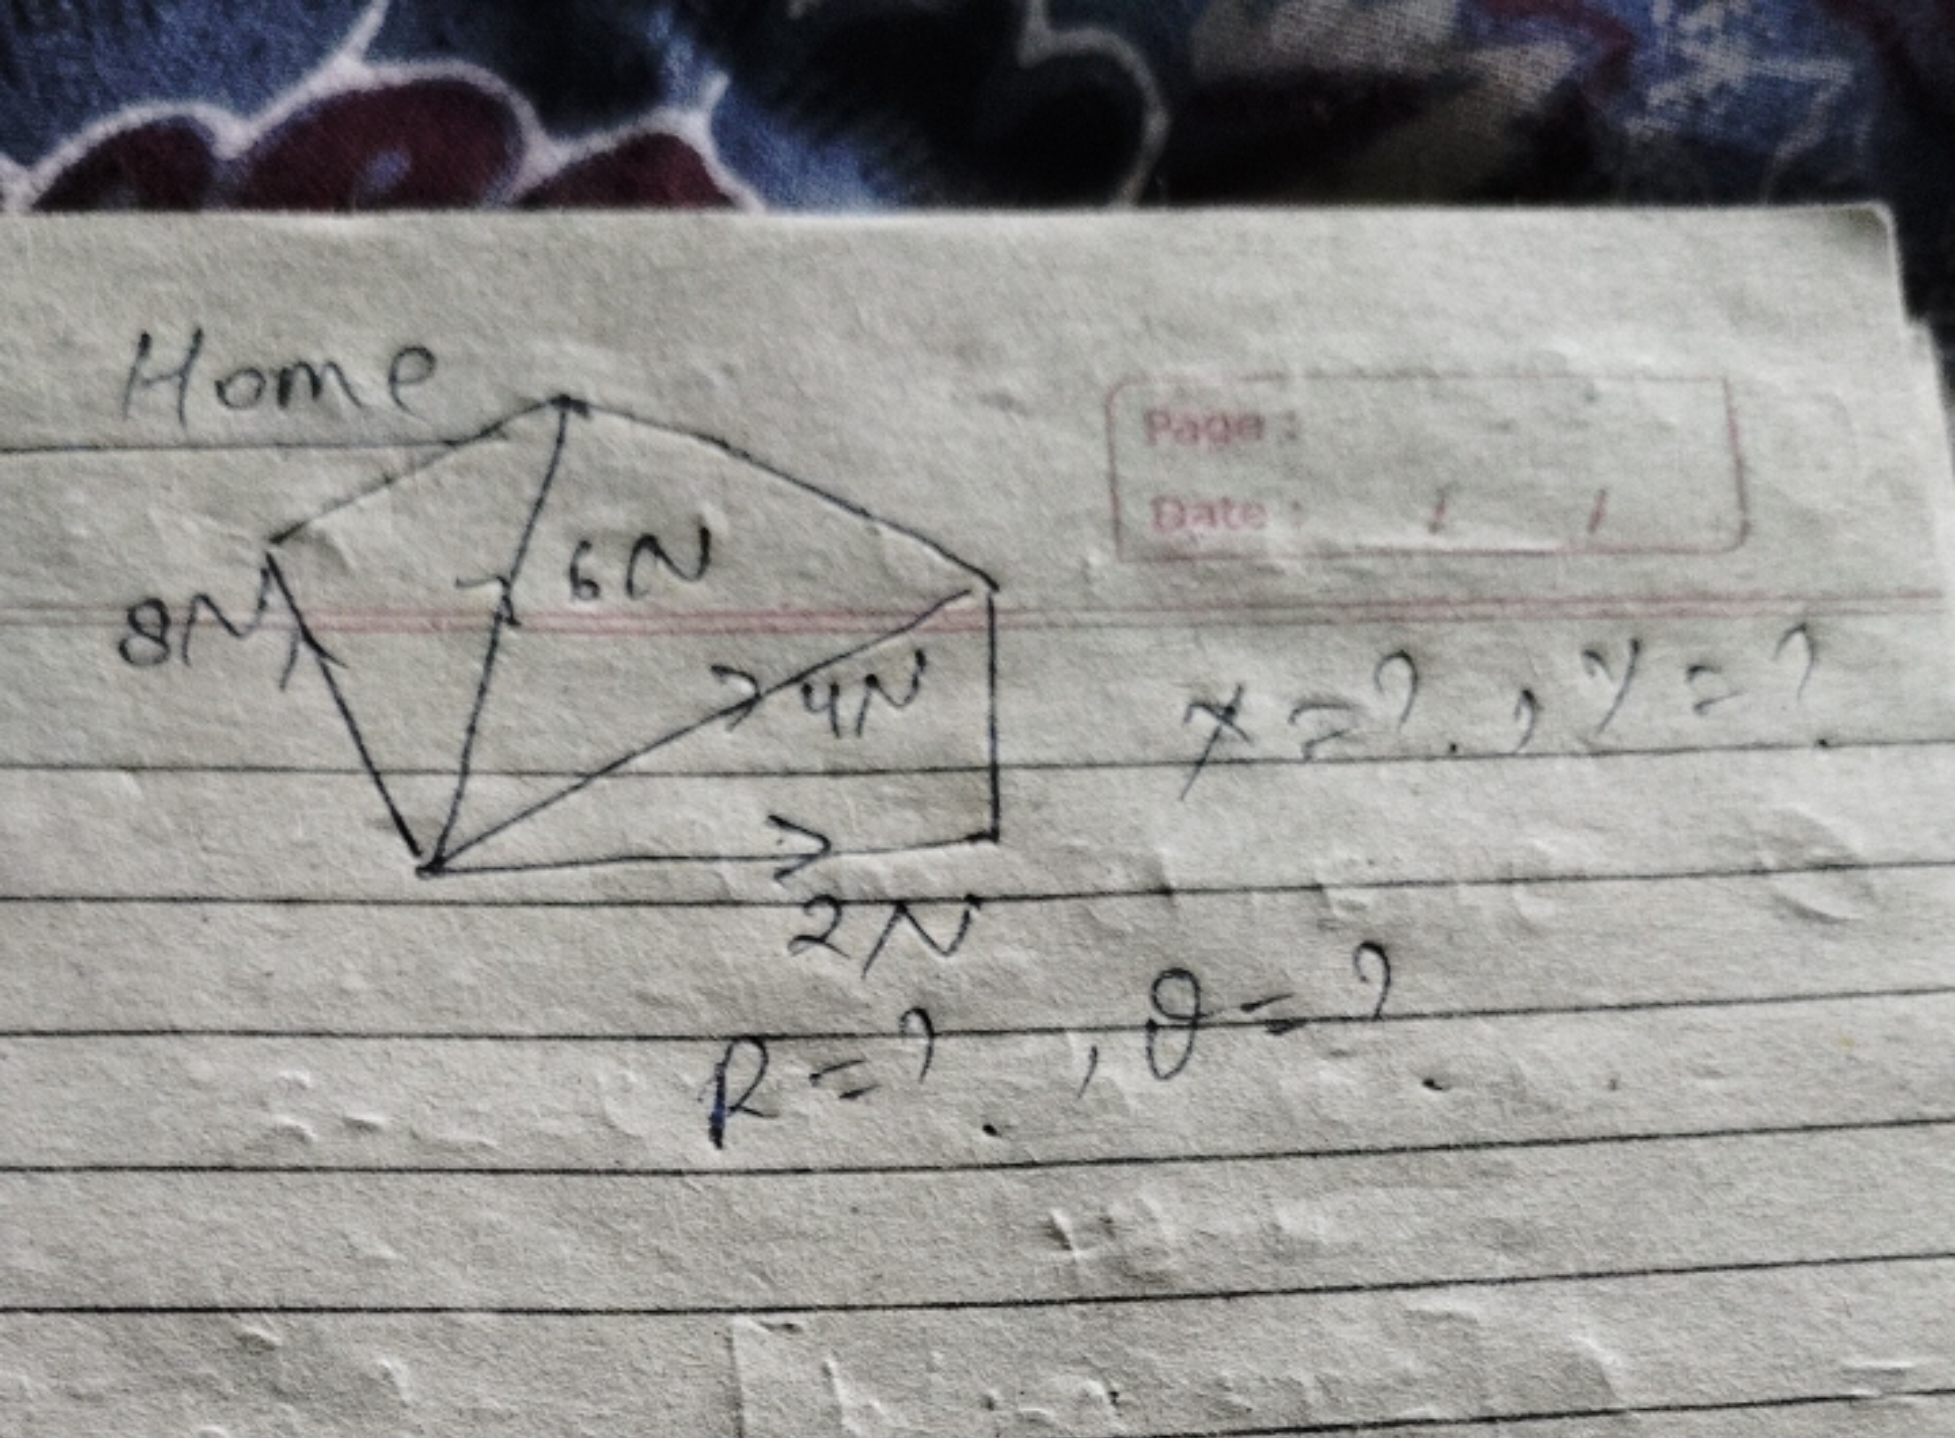 Home
Page :
Date : / /
6N
8N
4N
x = ? , y = ?
2N
R = ? , θ = ?